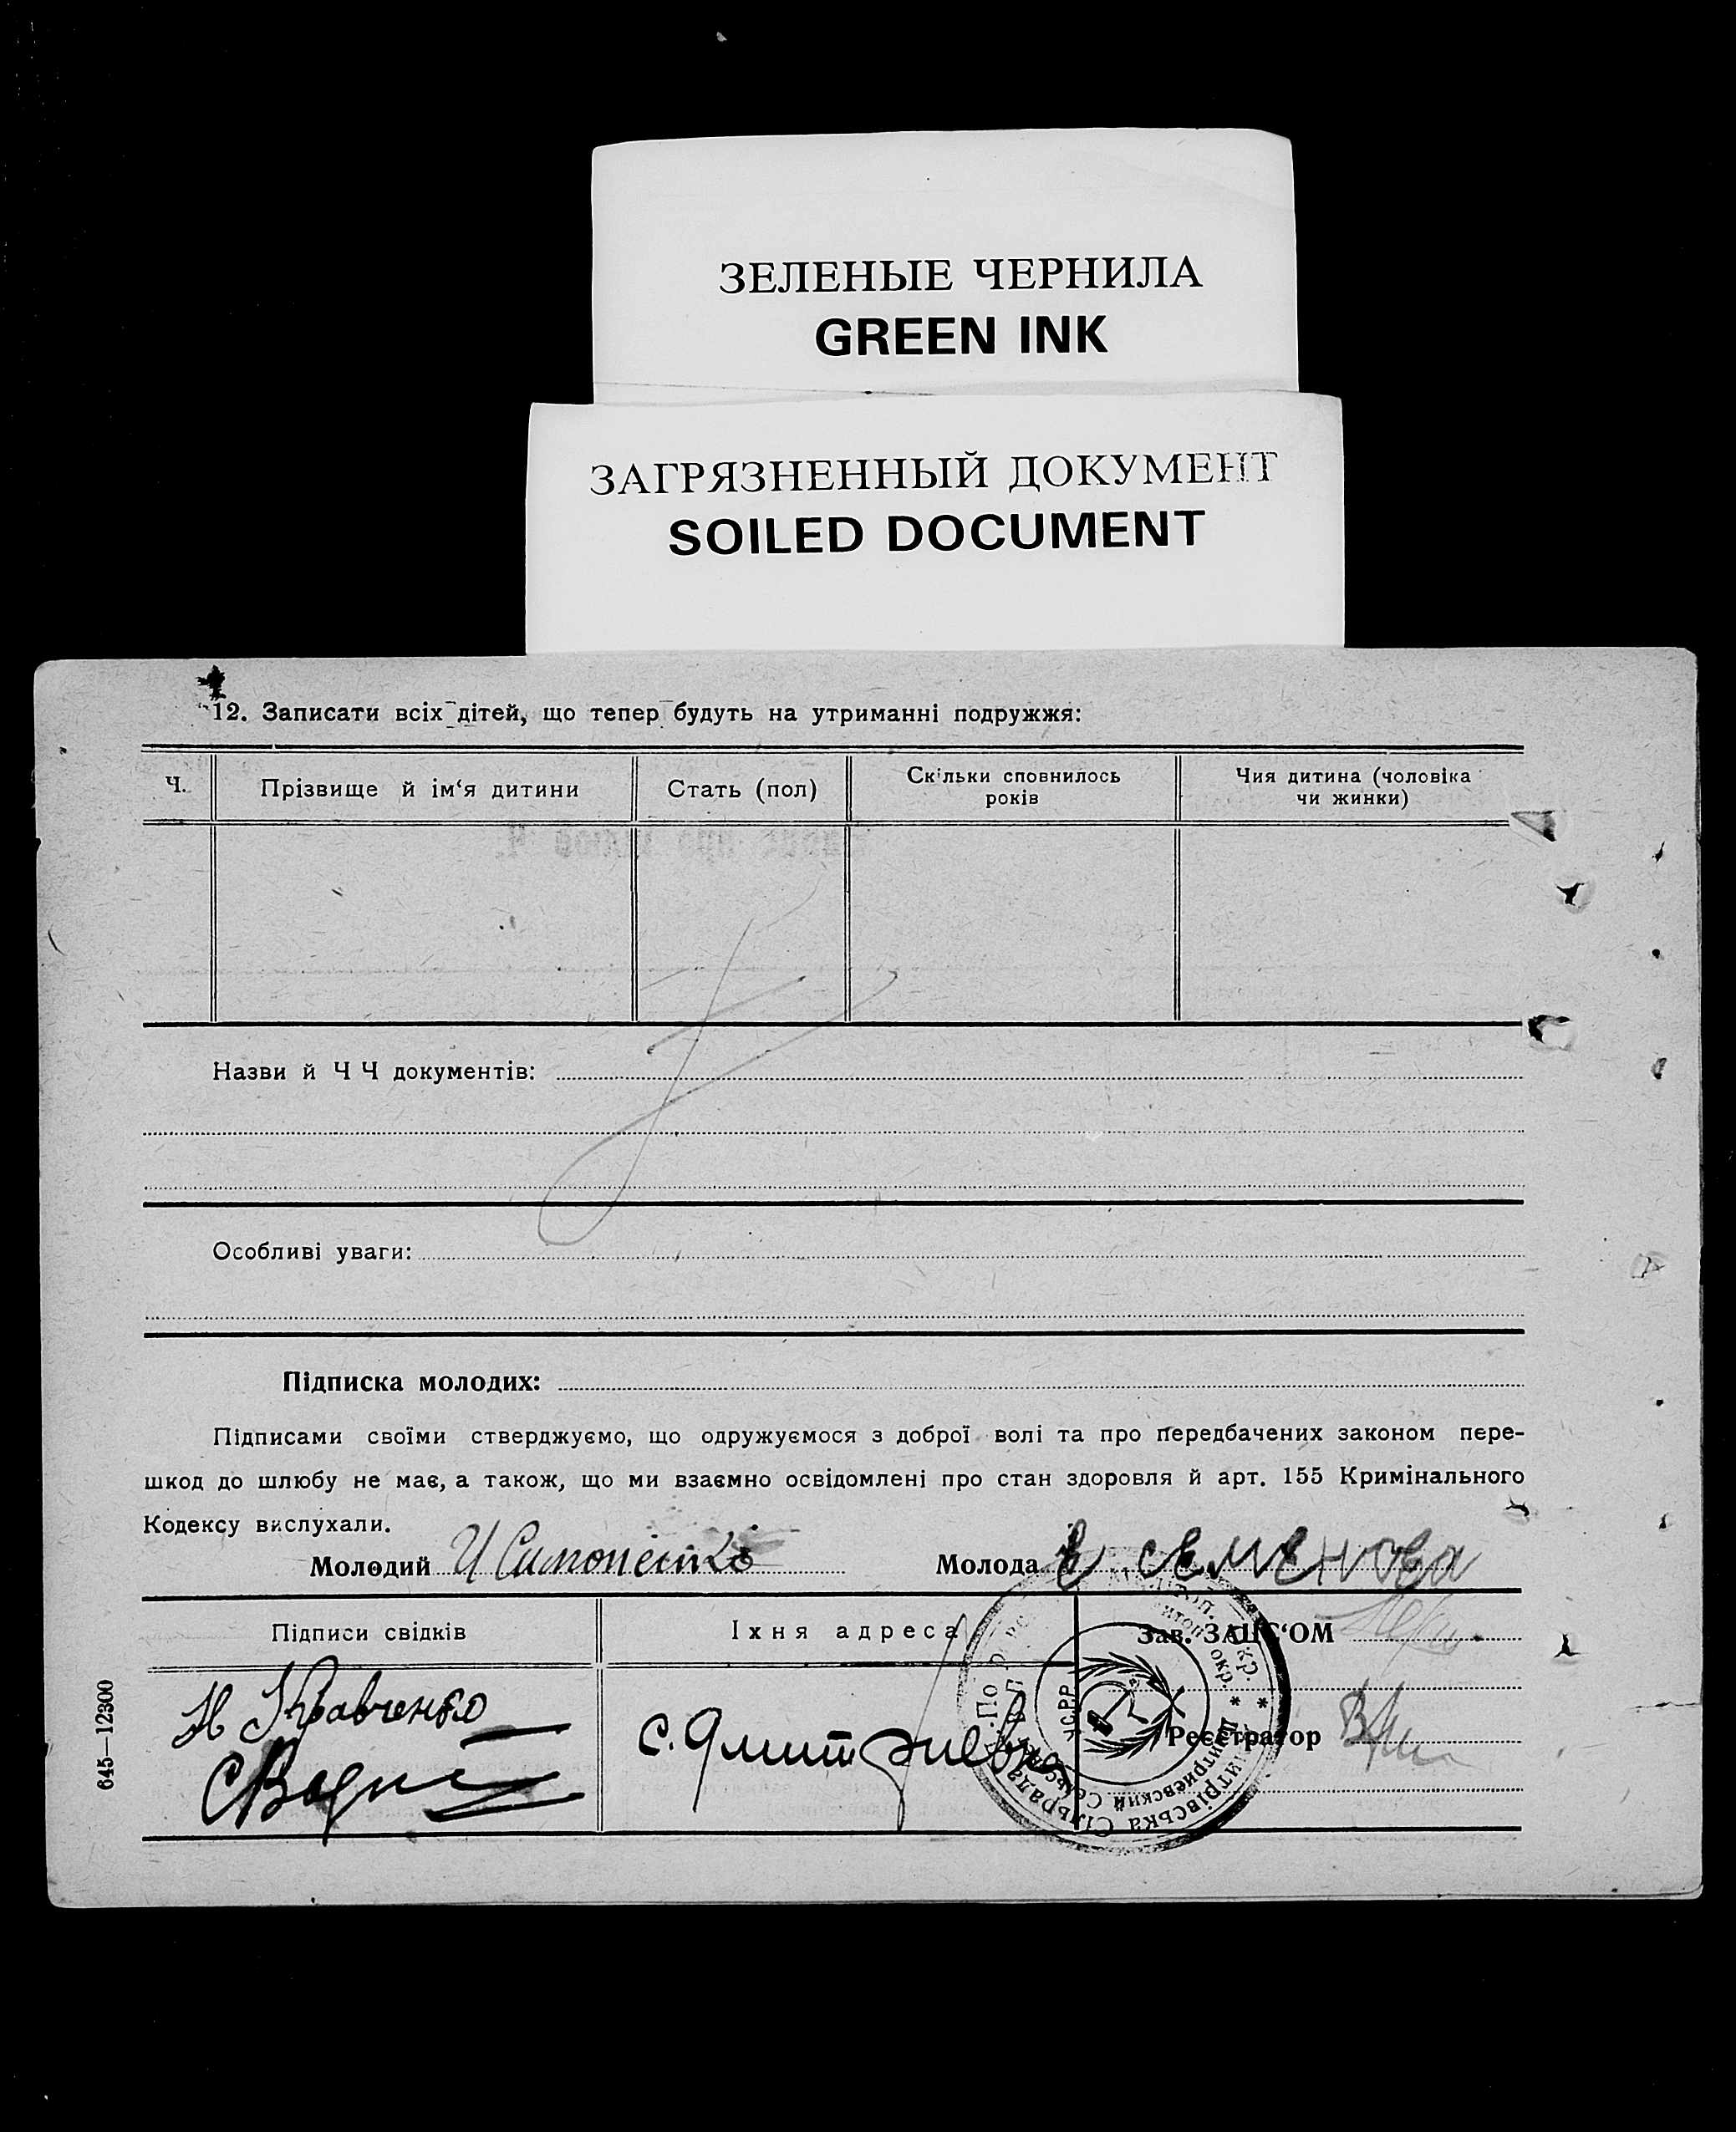 ЗЕЛЕНЫЕ ЧЕРНИЛА
GREEN INK
ЗАГРЯЗНЕННЫЙ ДОКУМЕНТ
SOILED DOCUMENT
12. Записати всіх дітей, що тепер будуть на утриманні подружжя:
Ч.
Прізвище й ім‘я дитини
Стать (пол)
Скільки сповнилось
років
Чия дитина (чоловіка
чи жинки)
Назви й Ч Ч документів:
Особливі уваги:
Підписка молодих:
Підписами своїми стверджуємо, що одружуємося з доброї волі та про передбачених законом пере-
шкод до шлюбу не має, а також, що ми взаємно освідомлені про стан здоровля й арт. 155 Кримінального
Кодексу вислухали.
Молодий И Симоненко Молода Е семенова
Підписи свідків
Іхня адреса
Зав. ЗАЦС‘ОМ
Н Кравченко
с. Дмитриевка
Реєстратор
645—12300
УСРР
Дмитриевский
Сільрада